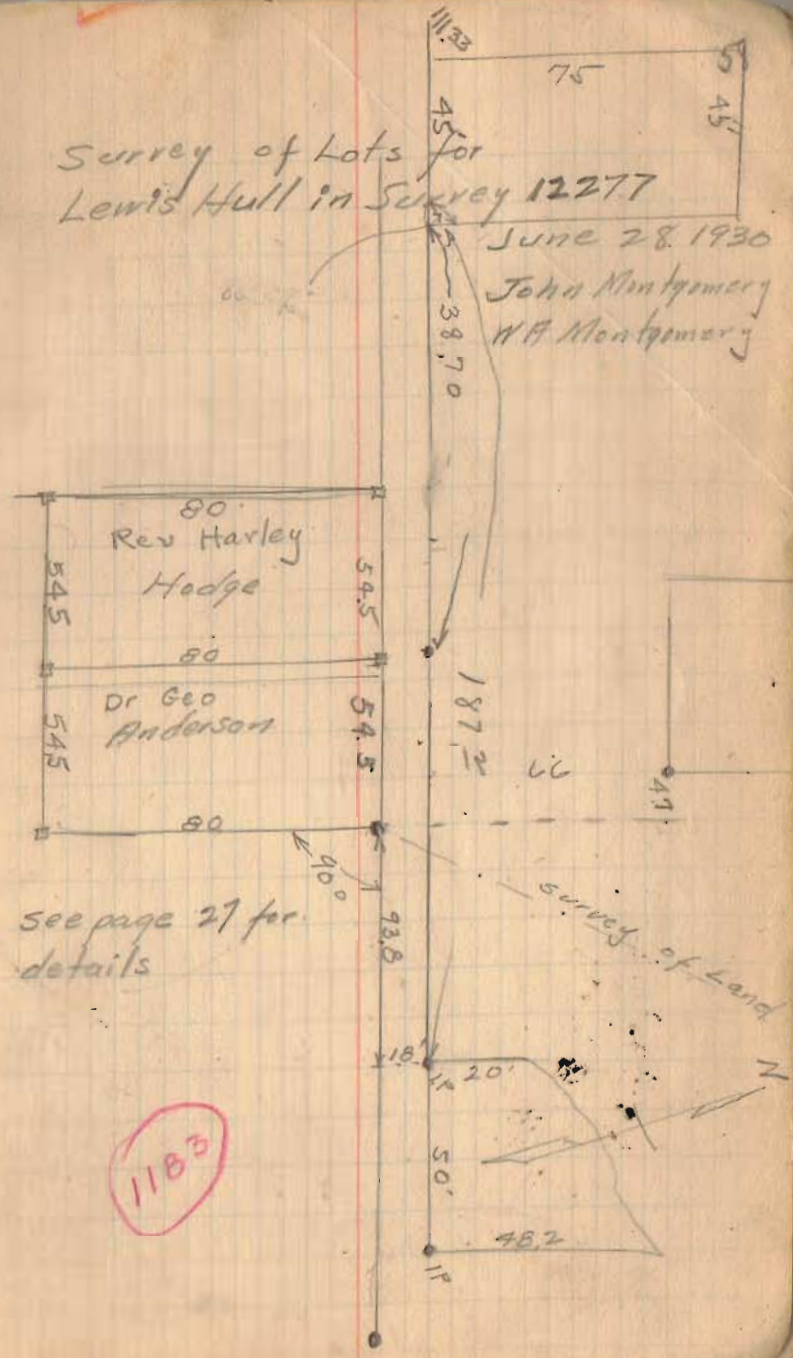 111.33
75
5
45'
45'
Survey of Lots for
Lewis Hull in Survey 12277
June 28. 1930
John Montgomery
WA Montgomery
38.70
80
Rev Harley
Hodge
54.5
54.5
80
Dr Geo
Anderson
54.5
54.5
187 2
66
47
80
90°
93.8
see page 27 for
details
survey of Land
18'
IP
20'
N
50'
1183
48.2
IP